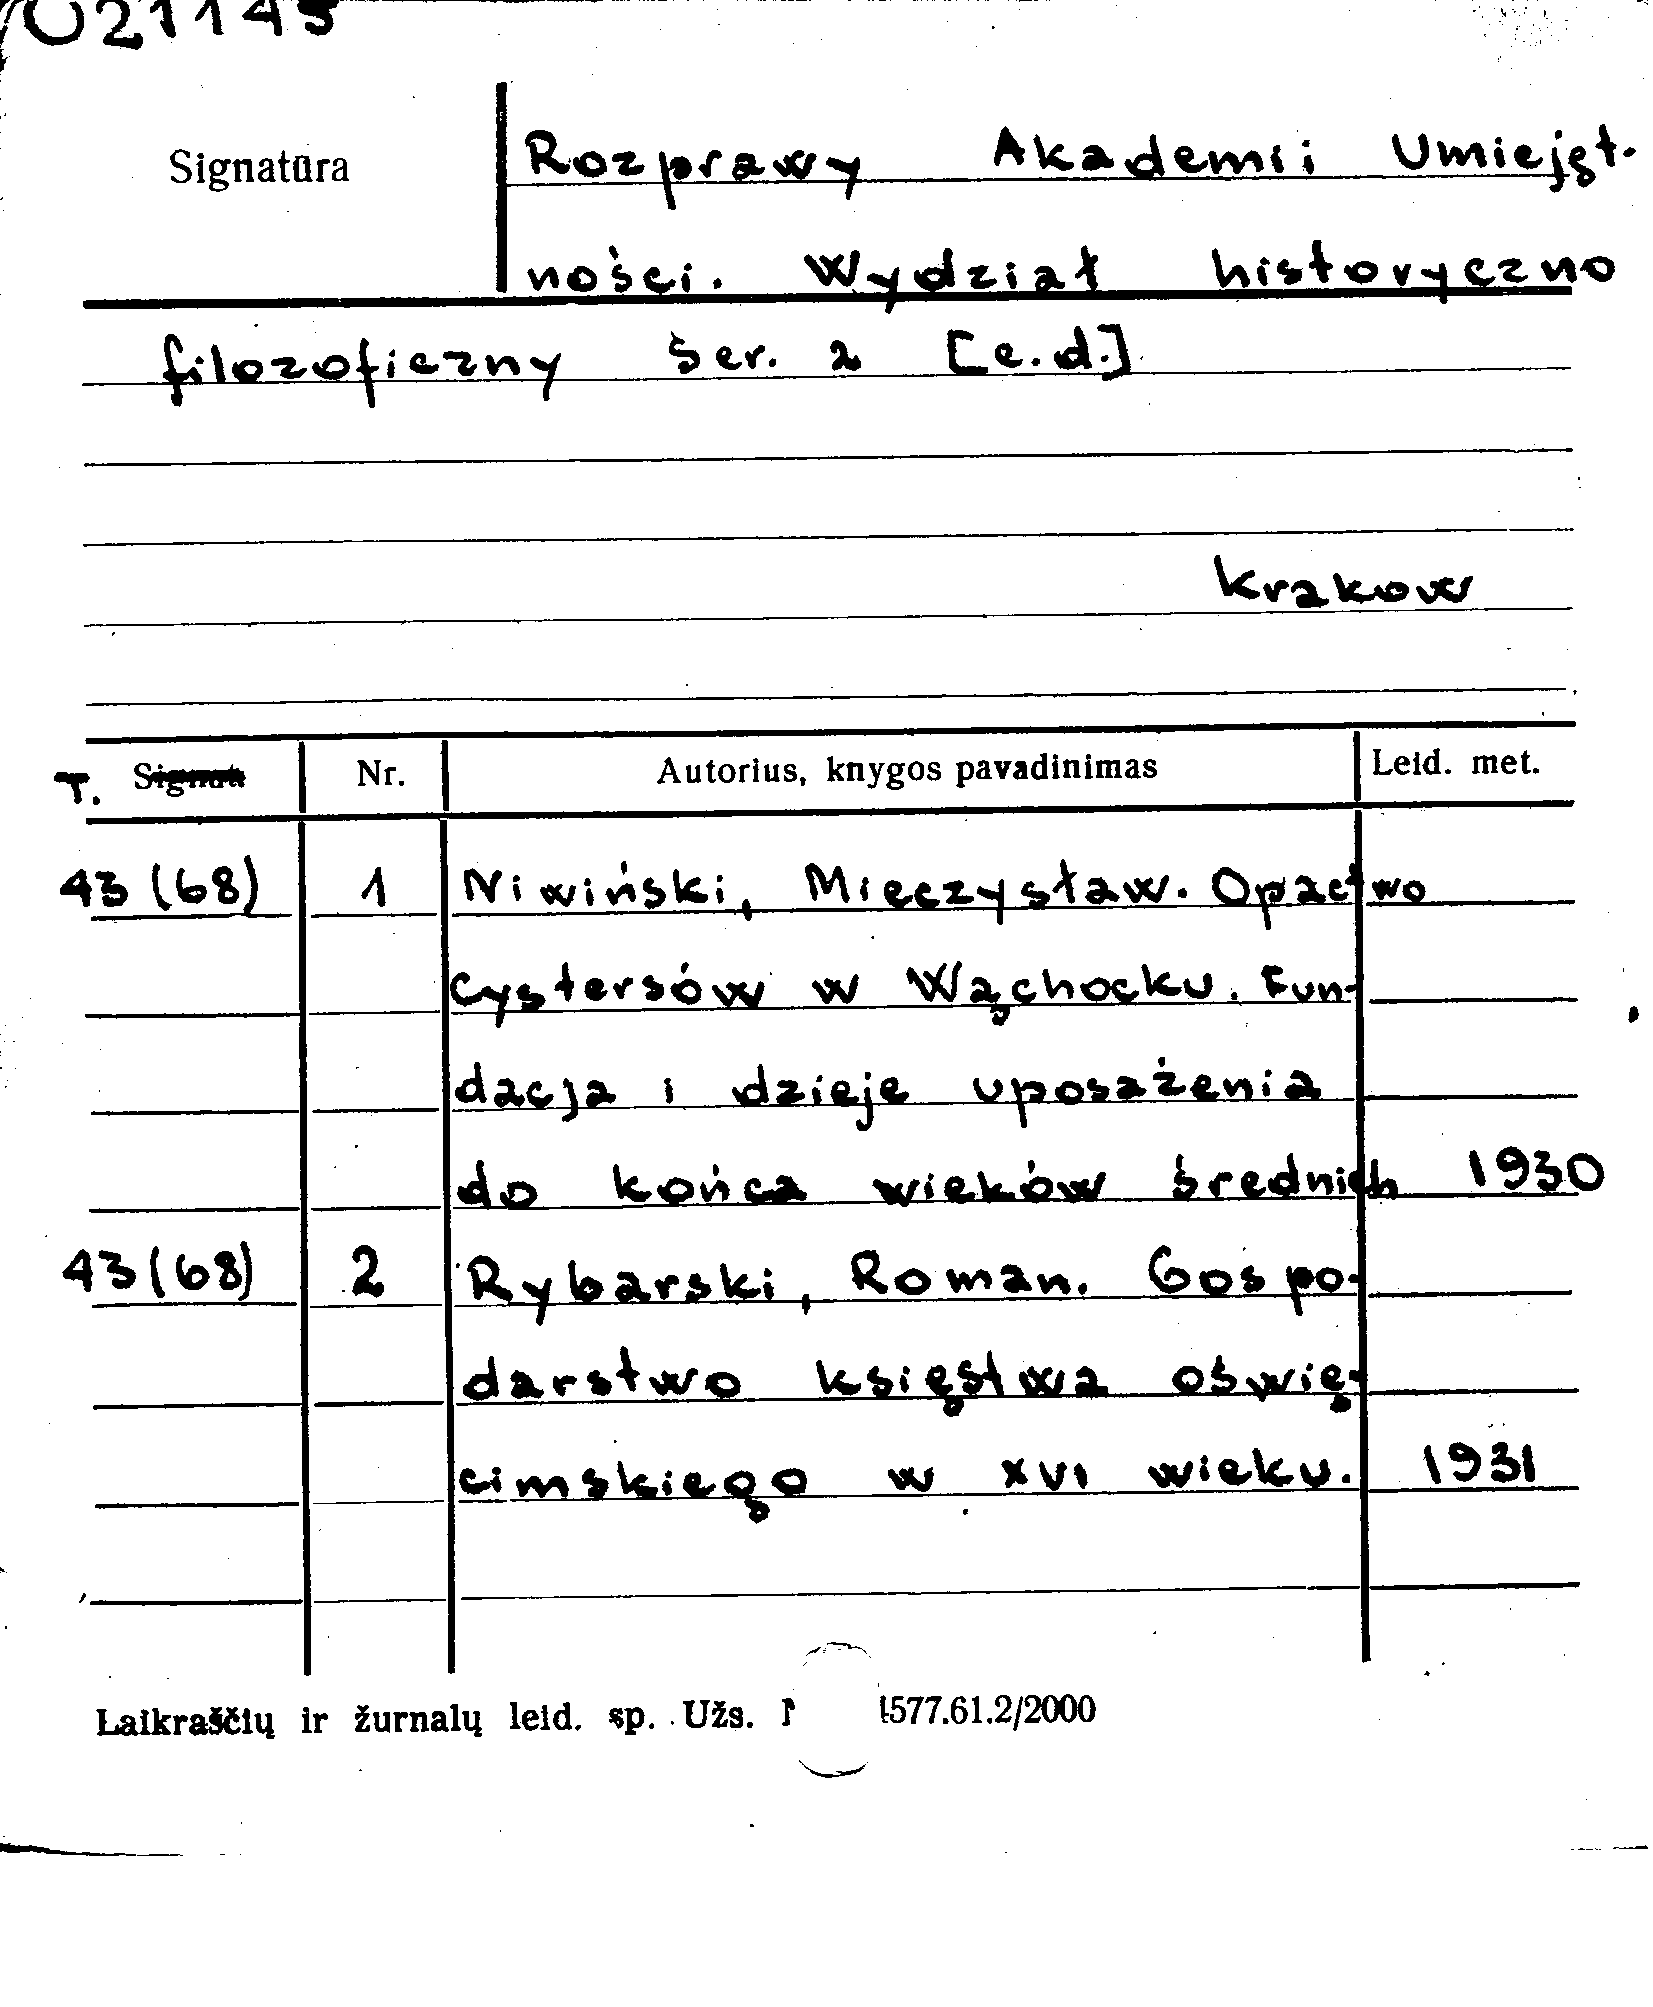 021145
Signatūra
Rozprawy Akademii Umiejęt-
ności. Wydział historyczno
filozoficzny Ser. 2 [c.d.]
Krakow
T. Signat. Nr. Autorius, knygos pavadinimas Leid. met.
43 (68) 1 Niwiński, Mieczysław. Opactwo
cystersów w Wąchocku. Fun-
dacja i dzieje uposażenia
do końca wieków średnich 1930
43 (68) 2 Rybarski, Roman. Gospo-
darstwo księstwa oświę-
cimskiego w XVI wieku. 1931
Laikraščių ir žurnalų leid. sp. Užs. 4577.61.2/2000